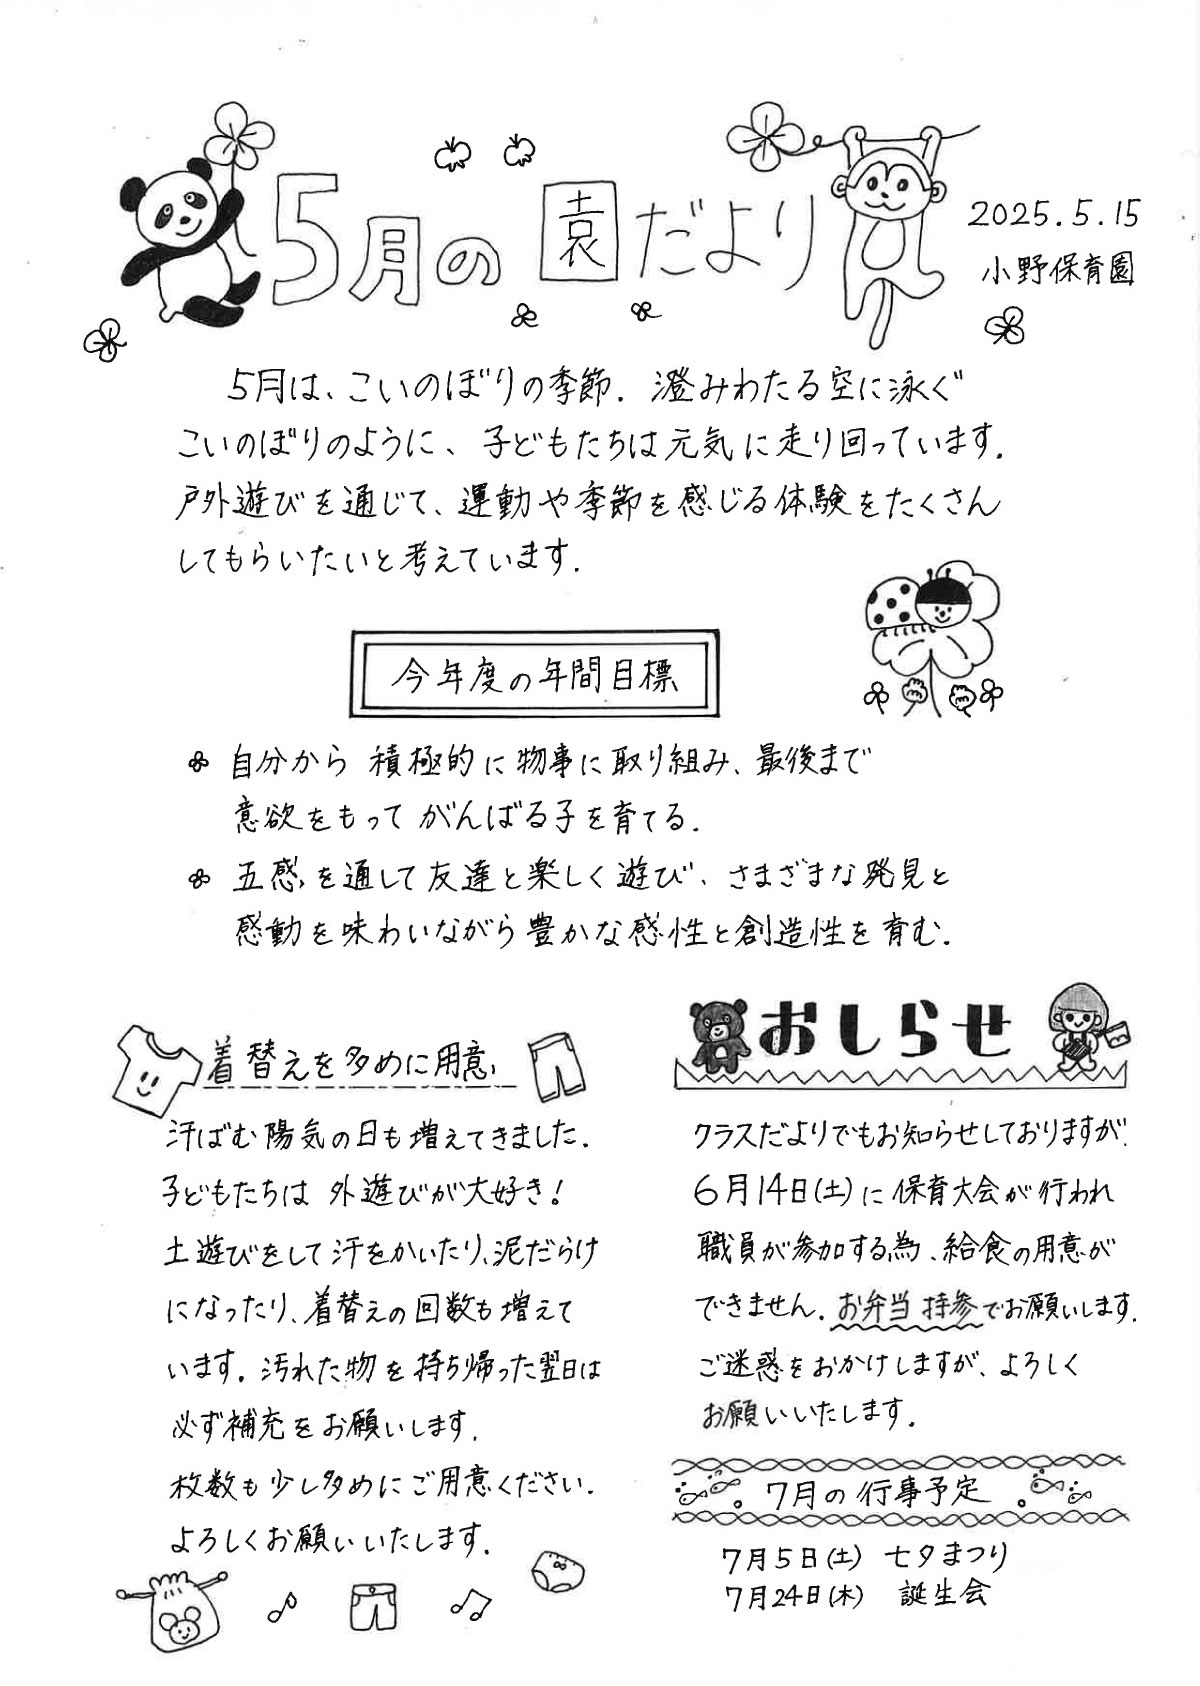 5月の園だより
2025.5.15
小野保育園
5月は、こいのぼりの季節. 澄みわたる空に泳ぐ
こいのぼりのように、子どもたちは元気に走り回っています.
戸外遊びを通じて、運動や季節を感じる体験をたくさん
してもらいたいと考えています.
今年度の年間目標
自分から 積極的に物事に取り組み、最後まで
意欲をもって がんばる子を育てる.
五感を通して友達と楽しく遊び、さまざまな発見と
感動を味わいながら豊かな感性と創造性を育む.
着替えを多めに用意
汗ばむ陽気の日も増えてきました.
子どもたちは 外遊びが大好き!
土遊びをして汗をかいたり、泥だらけ
になったり、着替えの回数も増えて
います. 汚れた物を持ち帰った翌日は
必ず補充をお願いします.
枚数も少し多めにご用意ください.
よろしくお願いいたします.
おしらせ
クラスだよりでもお知らせしておりますが.
6月14日(土)に保育大会が行われ
職員が参加する為、給食の用意が
できません. お弁当持参でお願いします.
ご迷惑をおかけしますが、よろしく
お願いいたします.
7月の行事予定
7月5日(土) 七夕まつり
7月24日(木) 誕生会